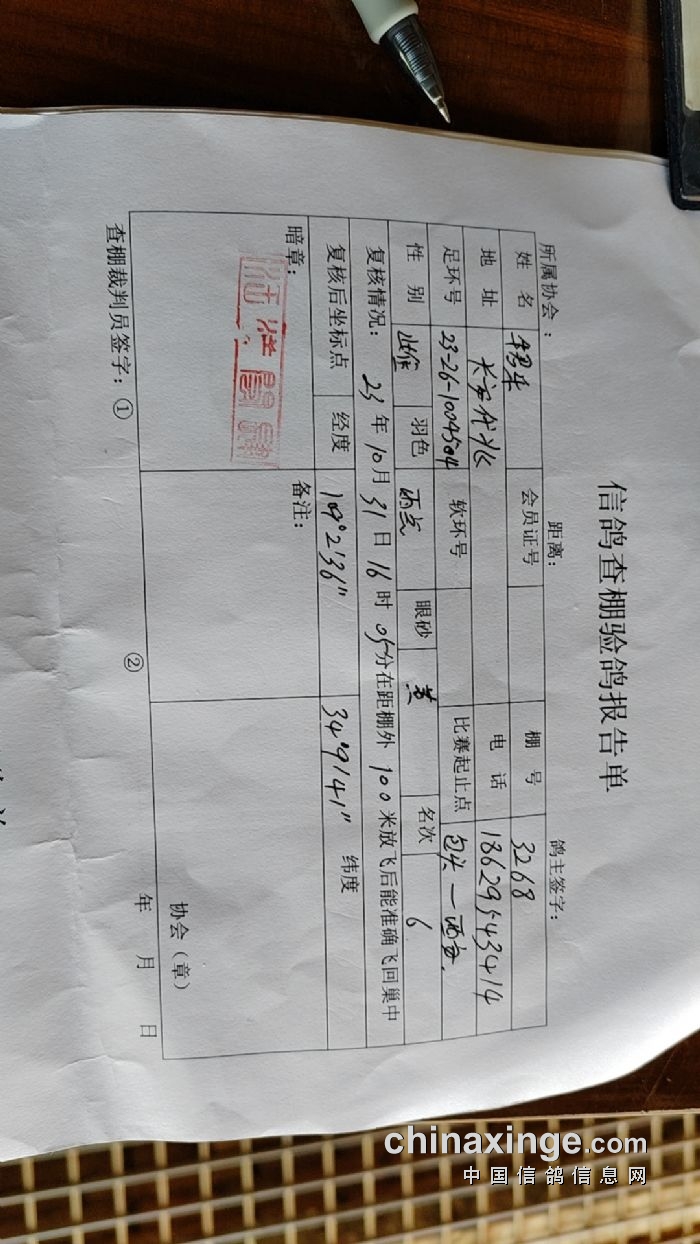 信鸽查棚验鸽报告单
所属协会： 距离： 鸽主签字：
姓 名 会员证号 棚 号 3268
地 址 长安 电 话 18629543414
足环号 23-26-1004504 软环号 比赛起止点 包头一西安.
性 别 雄 羽色 雨点 眼砂 黄 名次 6
复核情况： 23 年 10 月 31 日 16 时 05 分在距棚外 100 米放飞后能准确飞回巢中
复核后坐标点 经度 109°2'36" 34°9'41" 纬度
暗章： 备注：
协会（章）
年 月 日
查棚裁判员签字：① ②
chinaxinge.com
中国信鸽信息网